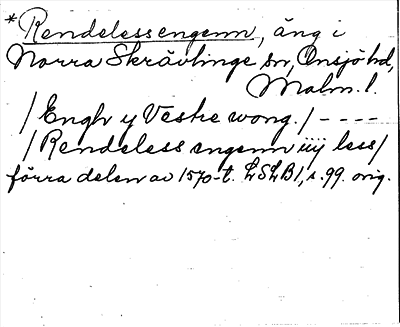 *Rendelessengenn, äng i
Norra Skrävlinge sn, Onsjö hd,
Malm. l.
/Engh y Vestre wong./----
/Rendeless engenn iiij less/
förra delen av 1570-t. LSLB1, s. 99. orig.